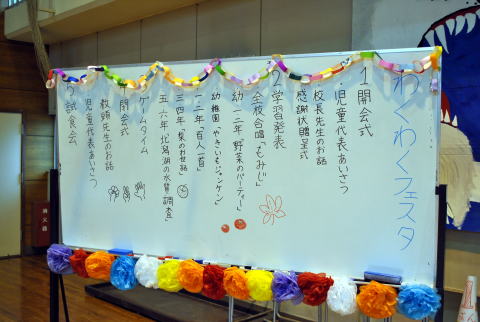 わくわくフェスタ
1 開会式
・児童代表あいさつ
校長先生のお話
感謝状贈呈式
2 学習発表
全校合唱「もみじ」
幼・一二年「野菜のパーティー」
幼稚園「やきいもジャンケン」
一・二年「百人一首」
三・四年「梨のお世話」
五・六年「北潟湖の水質調査」
3 ゲームタイム
4 閉会式
教頭先生のお話
児童代表あいさつ
5 試食会
消火器